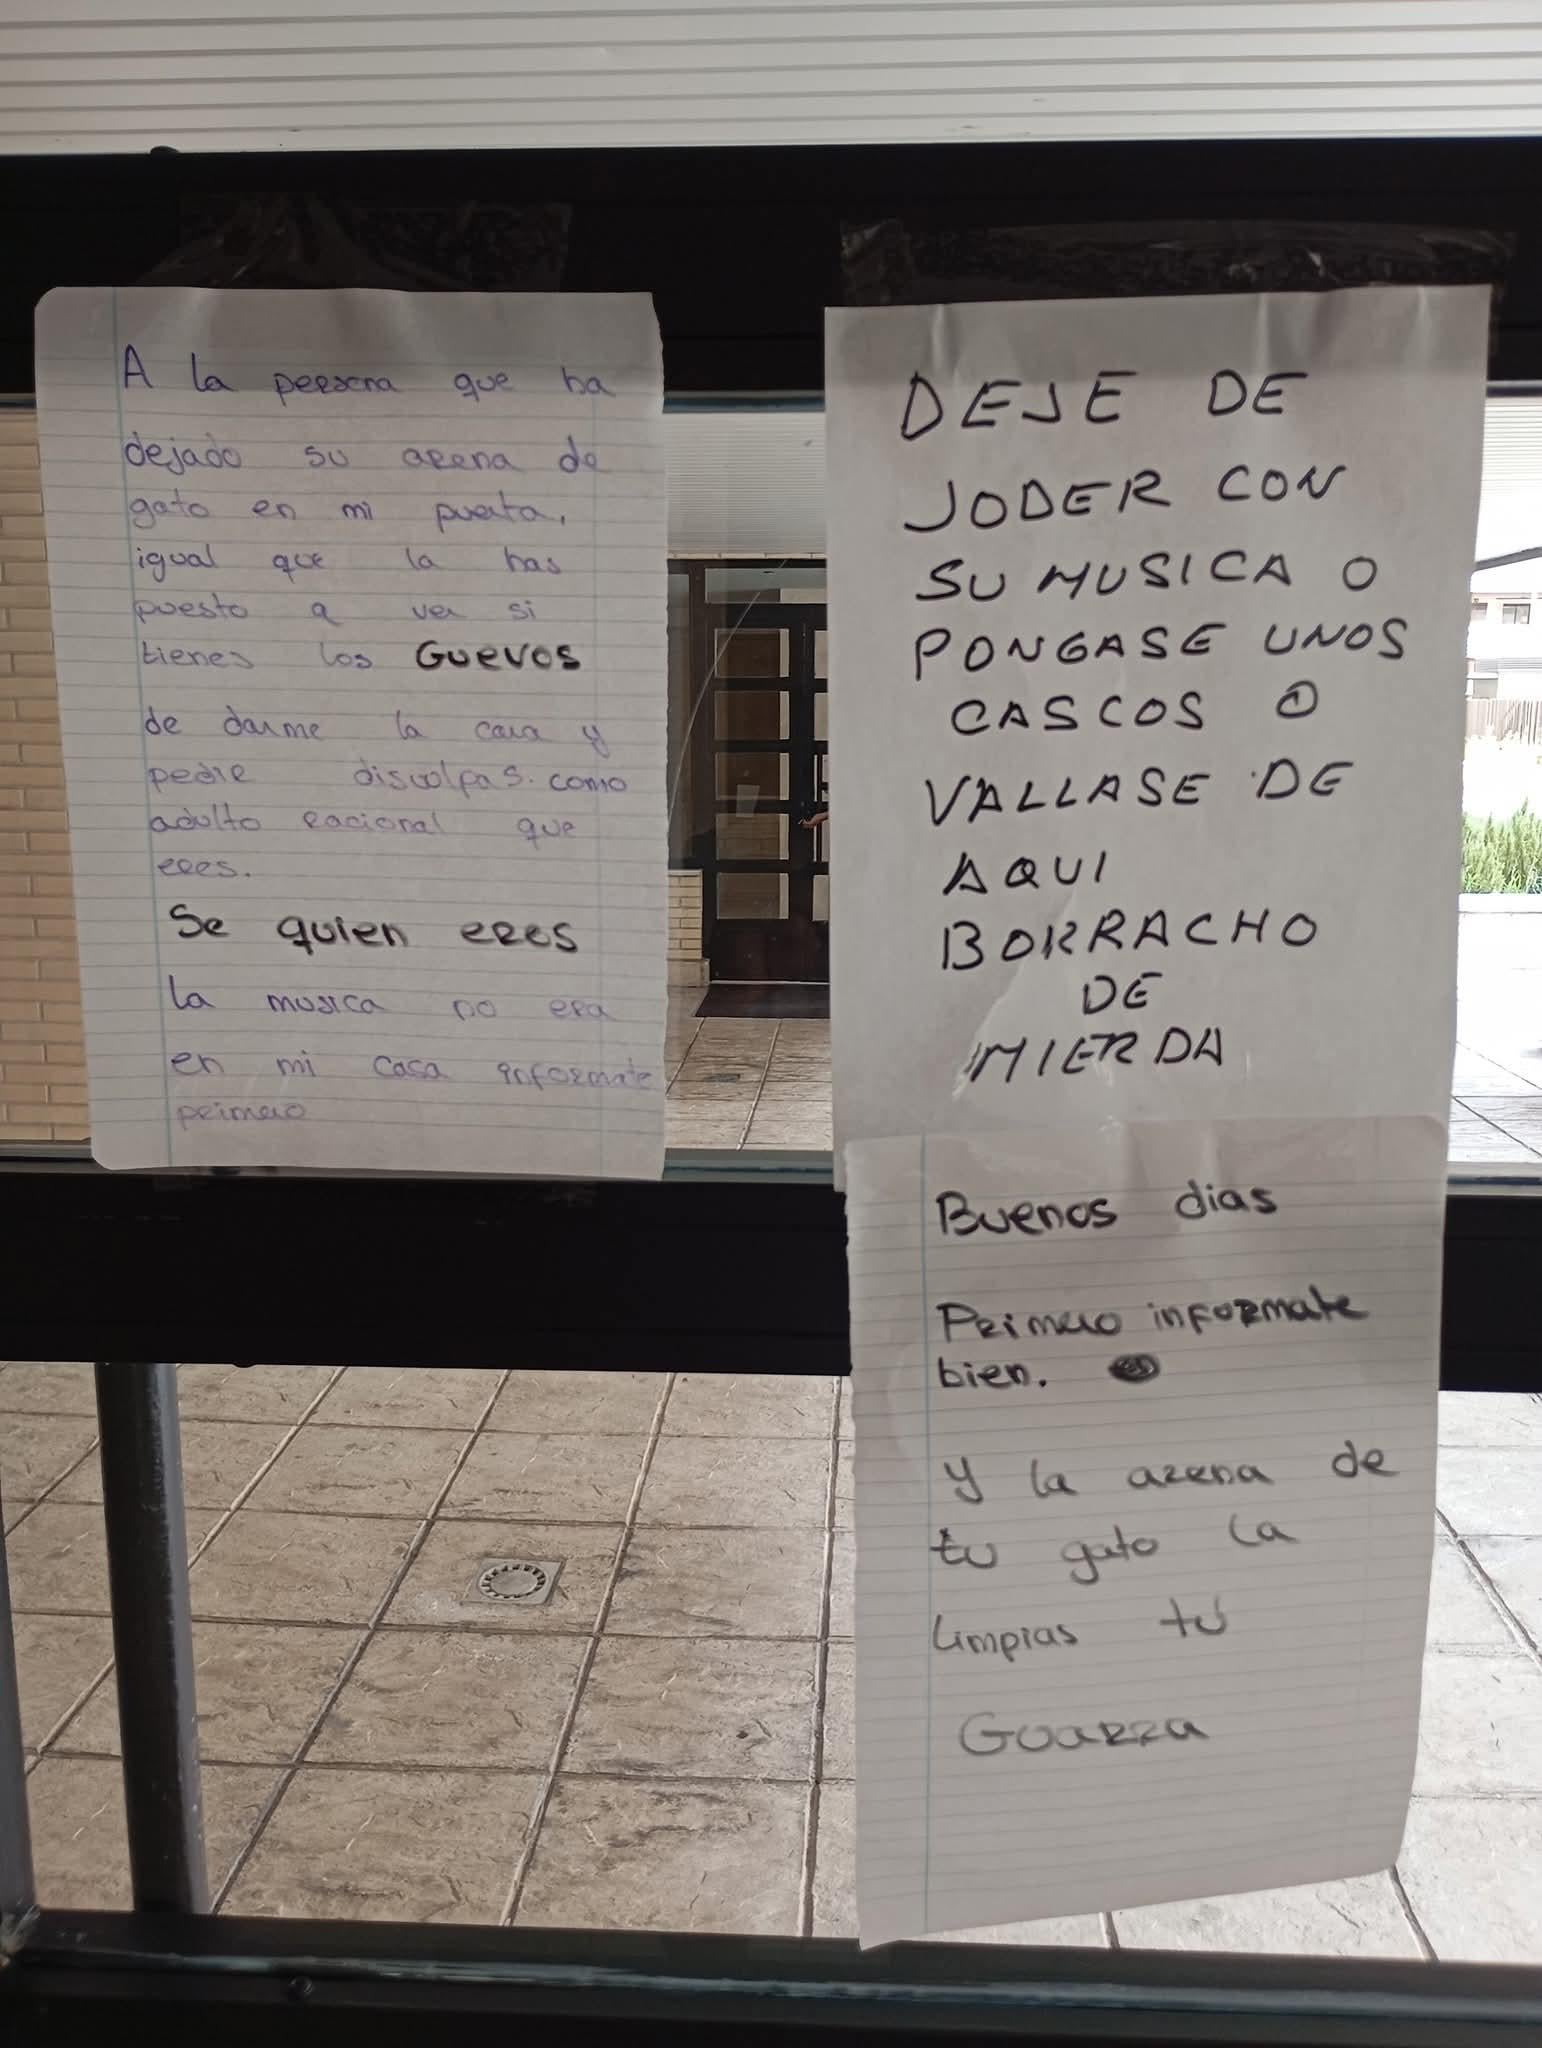 A la persona que ha
dejado su arena de
gato en mi puerta,
igual que la has
puesto a ver si
tienes los GUEVOS
de darme la cara y
pedir disculpas. como
adulto racional que
eres.
Se quien eres
la musica no era
en mi casa informate
primero
DEJE DE
JODER CON
SU MUSICA O
PONGASE UNOS
CASCOS O
VALLASE DE
AQUI
BORRACHO
DE
MIERDA
Buenos dias
Primero informate
bien.
y la arena de
tu gato la
limpias tú
Guarra